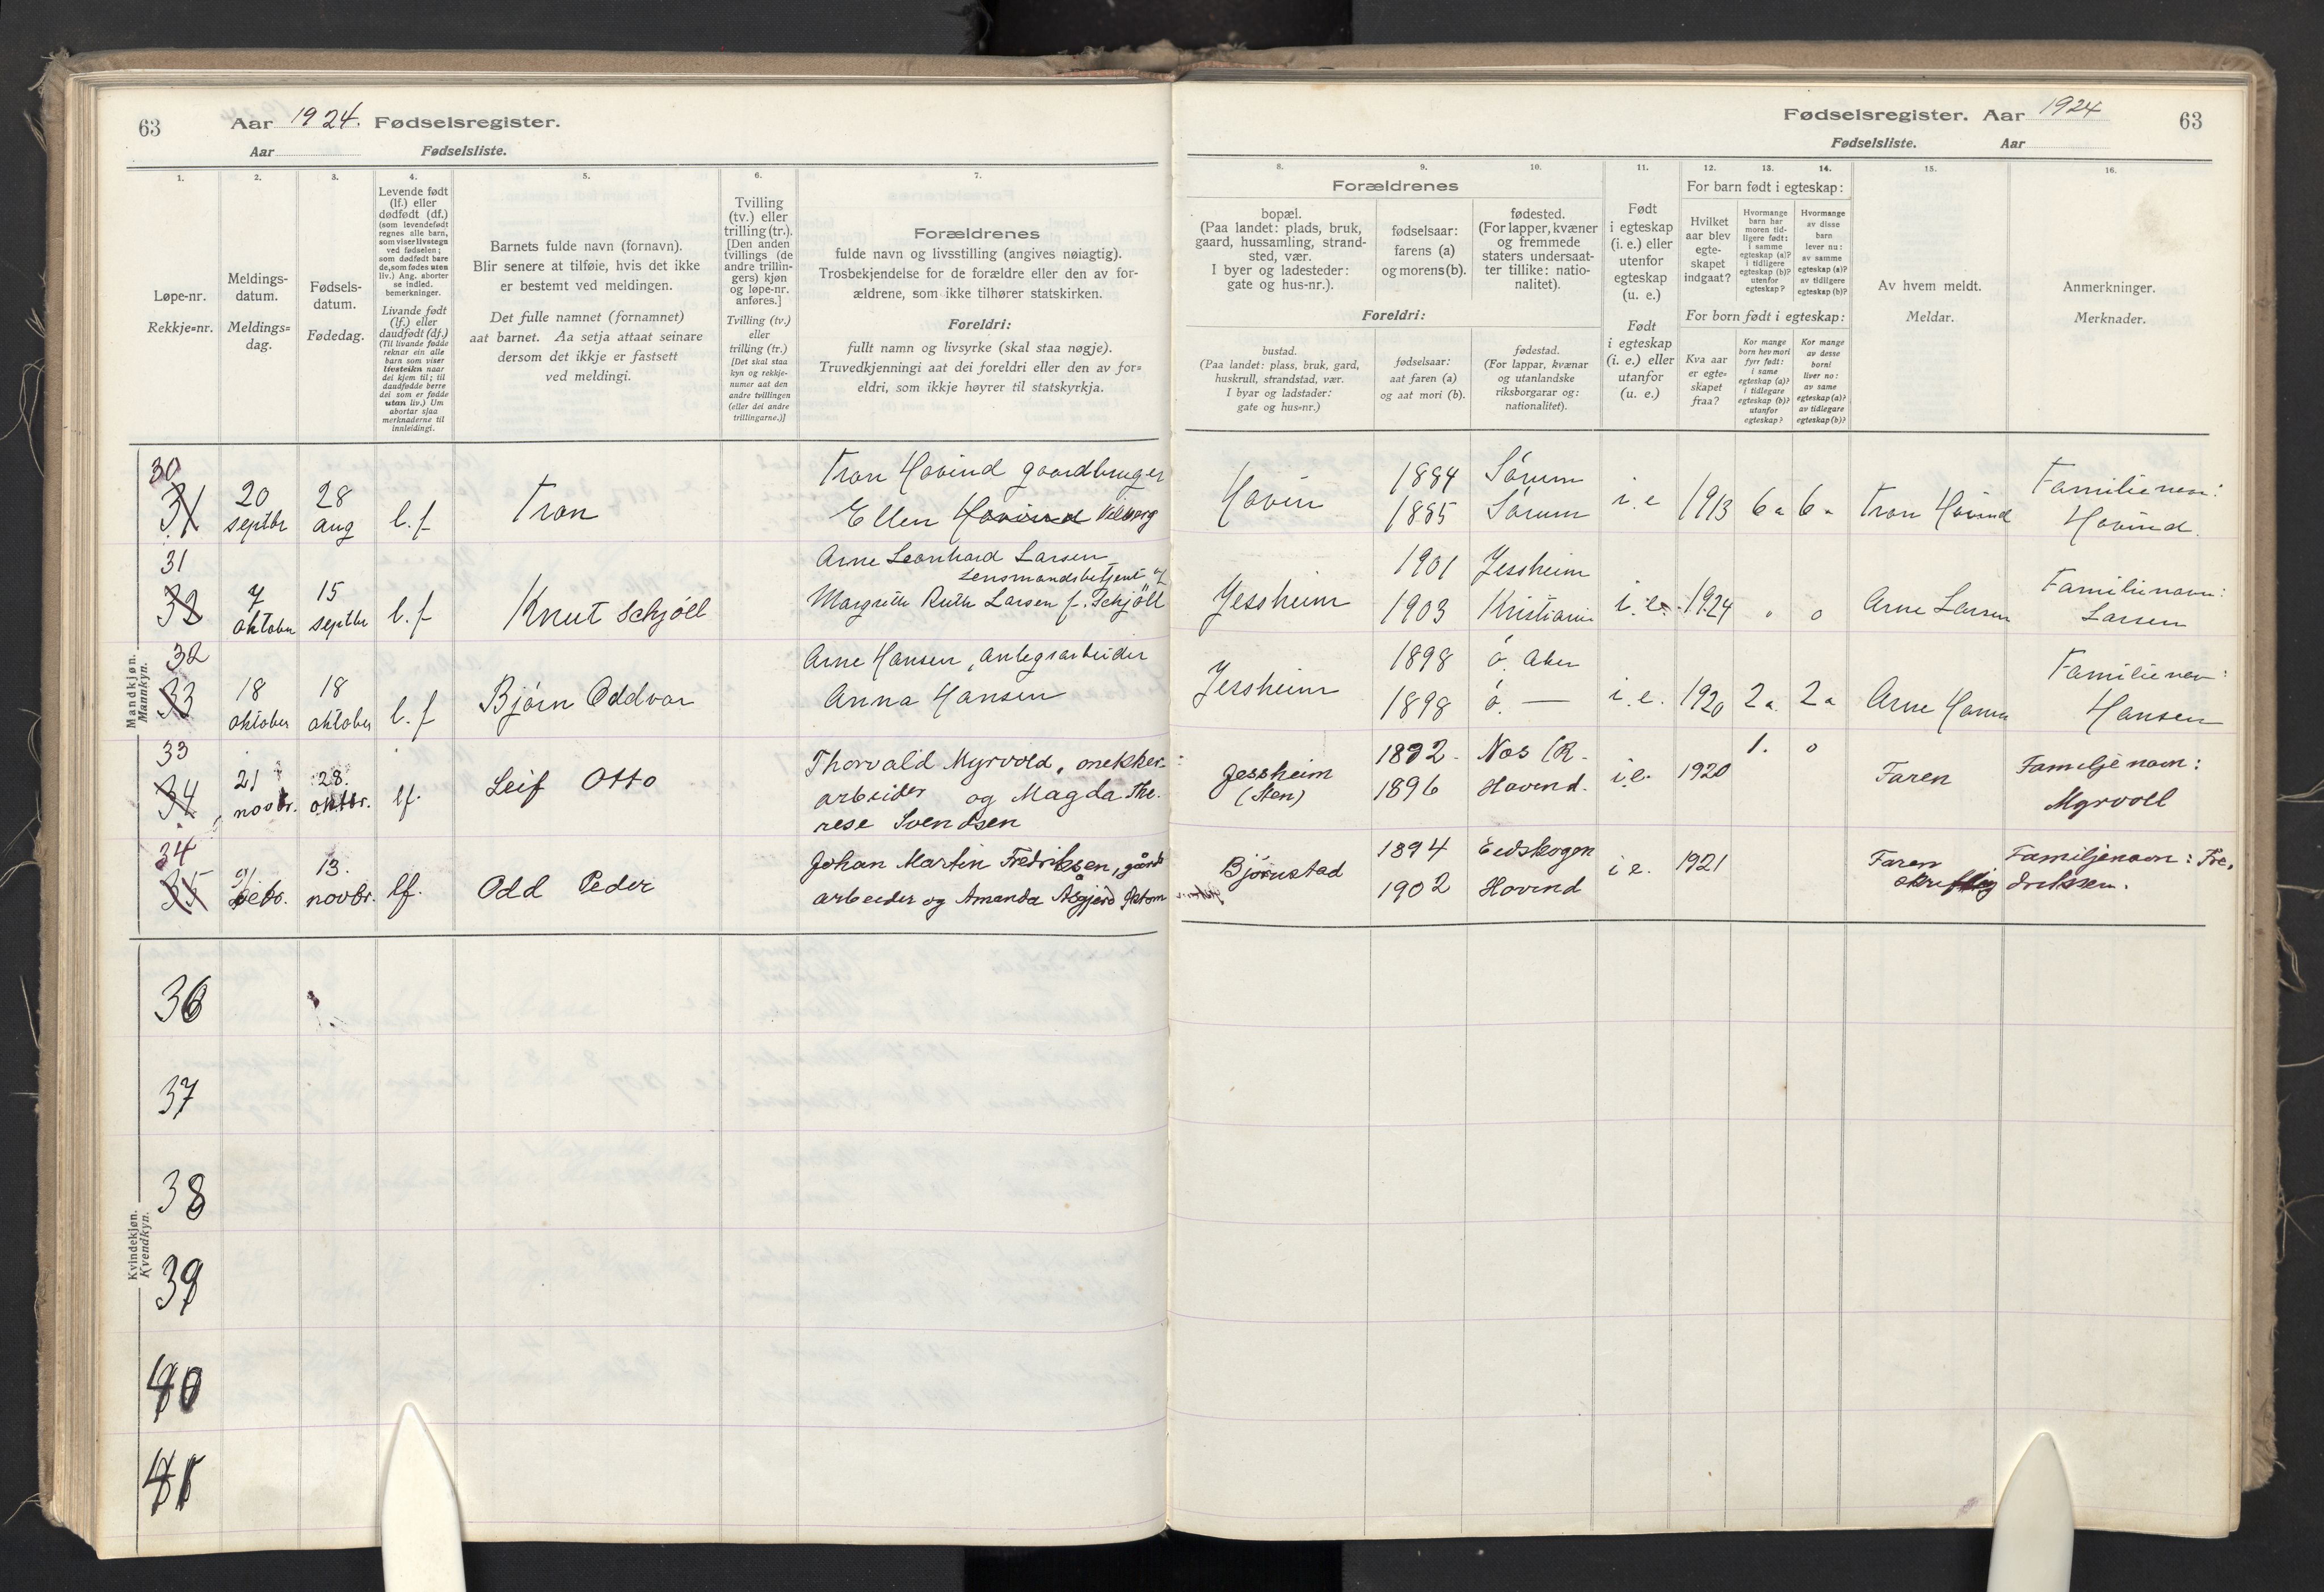 63
Aar 1924. Fødselsregister.
Aar
Fødselsliste.
1.
2.
3.
4.
5.
6.
7.
Løpe-nr.
Rekkje=nr.
Meldings-
datum.
Meldings=
dag.
Fødsels-
datum.
Fødedag.
Levende født
(lf.) eller
dødfødt (df.)
(som levendefødt
regnes alle barn,
som viser livstegn
ved fødselen;
som dødfødt bare
de, som fødes uten
liv.) Ang. aborter
se indled.
bemerkninger.
Livande født
(lf.) eller
daudfødt (df.)
(Til livande fødde
reknar ein alle
barn som viser
livsteikn naar
dei kjem til; til
daudfødde berre
dei som er fødde
utan liv.) Um
abortar sjaa
merknaderne til
innleidingi.
Barnets fulde navn (fornavn).
Blir senere at tilføie, hvis det ikke
er bestemt ved meldingen.
Det fulle namnet (fornamnet)
aat barnet. Aa setja attaat seinare
dersom det ikkje er fastsett
ved meldingi.
Tvilling
(tv.) eller
trilling (tr.).
[Den anden
tvillings (de
andre trillin-
gers) kjøn
og løpe-nr.
anføres.]
Tvilling (tv.)
eller
trilling (tr.)
[Det skal staa
kyn og rekkje-
numer aat den
andre tvillingen
(eller dei andre
trillingarne.)]
Forældrenes
fulde navn og livsstilling (angives nøiagtig).
Trosbekjendelse for de forældre eller den av for-
ældrene, som ikke tilhører statskirken.
Foreldri:
fullt namn og livsyrke (skal staa nøgje).
Truvedkjenningi aat dei foreldri eller den av for=
eldri, som ikkje høyrer til statskyrkja.
Mandkjøn.
Mannkyn.
30
31
20
septbr
28
aug
l.f
Tron
Tron Hovind gaardbruger
Ellen Hovind Vilberg
31
32
7
oktober
15
septbr
l.f
Knut Schjöll
Arne Leonhard Larsen
Lensmandsbetjent og
Margrethe Ruth Larsen f. Schjöll
32
33
18
oktober
18
oktober
l.f
Bjørn Oddvar
Arne Hansen, anlegsarbeider
Anna Hansen
33
34
21
novbr.
28.
oktbr.
lf.
Leif Otto
Thorvald Myrvold, snekker-
arbeider og Magda The-
rese Svendsen
34
35
13.
novbr.
lf.
Odd Peder
Johan Martin Fredriksen, gårds
arbeider og Amanda Asgjerd
36
37
38
39
40
41
Kvindekjøn.
Kvendkyn.
Fødselsregister. Aar 1924
63
Fødselsliste.
Aar
8.
9.
10.
11.
12.
13.
14.
15.
16.
Forældrenes
bopæl.
(Paa landet: plads, bruk,
gaard, hussamling, strand-
sted, vær.
I byer og ladesteder:
gate og hus-nr.).
fødselsaar:
farens (a)
og morens (b).
fødested.
(For lapper, kvæner
og fremmede
staters undersaat-
ter tillike: natio-
nalitet).
Foreldri:
bustad.
(Paa landet: plass, bruk, gard,
huskrull, strandstad, vær.
I byar og ladstader:
gate og hus=nr.)
fødselsaar:
aat faren (a)
og aat mori (b).
fødestad.
(For lappar, kvænar
og utanlandske
riksborgarar og:
nationalitet).
Født
i egteskap
(i. e.) eller
utenfor
egteskap
(u. e.)
Født
i egteskap
(i. e.) eller
utanfor
(u. e.)
For barn født i egteskap:
Hvilket
aar blev
egte-
skapet
indgaat?
Hvormange
barn har
moren tid-
ligere født:
i samme
egteskap (a)?
i tidligere
egteskap (b)?
utenfor
egteskap?
Hvormange
av disse
barn
lever nu:
av samme
egteskap (a)?
av tidligere
egteskap (b)?
For born født i egteskap:
Kva aar
er egte=
skapet
fraa?
Kor mange
born hev mori
fyrr født:
i same
egteskap (a)?
i tidlegare
egteskap (b)?
utanfor
egteskap?
Kor mange
av desse
borni
liver no:
av same
egteskap (a)?
av tidlegare
egteskap (b)?
Av hvem meldt.
Meldar.
Anmerkninger.
Merknader.
Hovin
1884
1885
Sørum
Sørum
i.e
1913
6a
6a
Tron Hovind
Familienavn:
Hovind.
Jessheim
1901
1903
Jessheim
Kristiania
i.e.
1924
"
o
Arne Larsen
Familienavn:
Larsen
Jessheim
1898
1898
ö. Aker
ö. —
i.e.
1920
2a.
2a
Arne Hansen
Familienavn:
Hansen
Jessheim
(Sten)
1896
Nes (R.
Hovind.
i.e.
1920
1.
o
Faren
Familjenavn:
Myrvoll
Bjørnstad
1894
1902
Eidskogen
Hovind
i e.
1921
Faren
skriftlig
Familjenavn: Fre-
driksen.